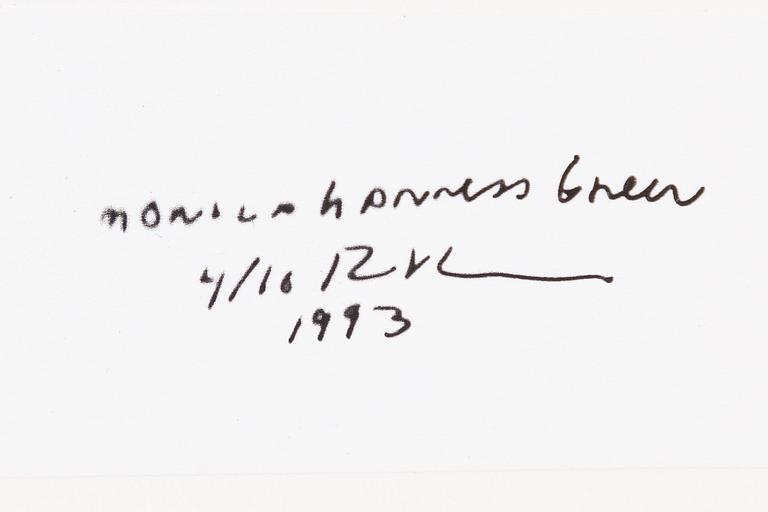 Monica Harness Green
4/10
1993